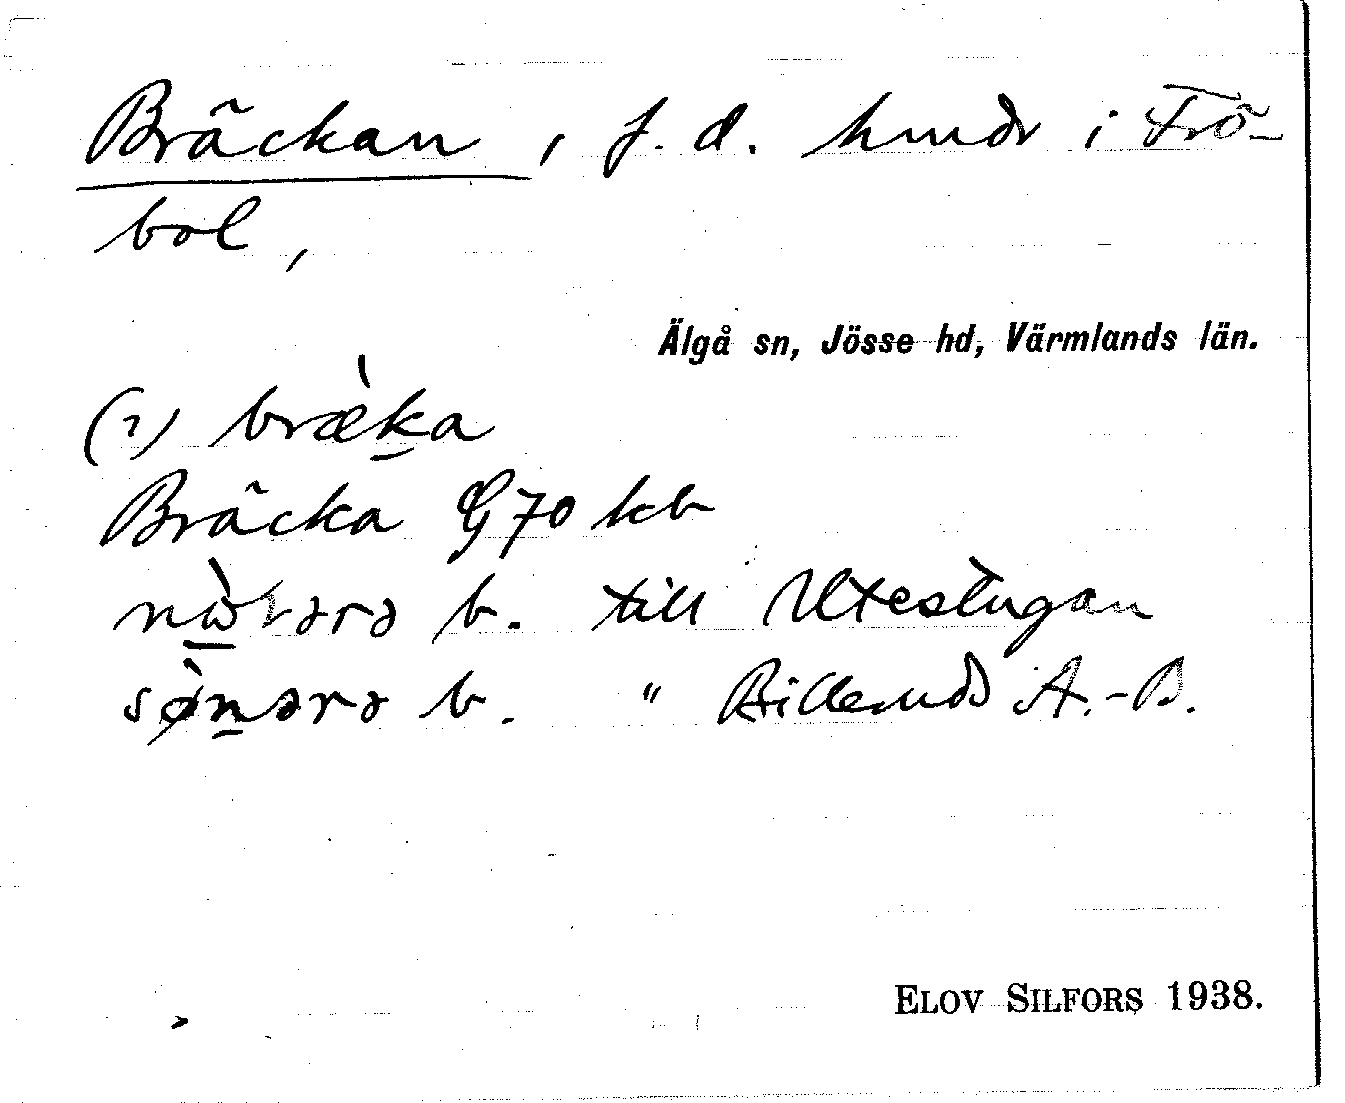 Bräckan, f. d. hmdr i Frö-
bol,
Älgå sn, Jösse hd, Värmlands län.
(1) bræ̀ka
Bräcka G70 kb
b. till Utestugan
sø̀nərə b. " Billeruds A.-B.
ELOV SILFORS 1938.